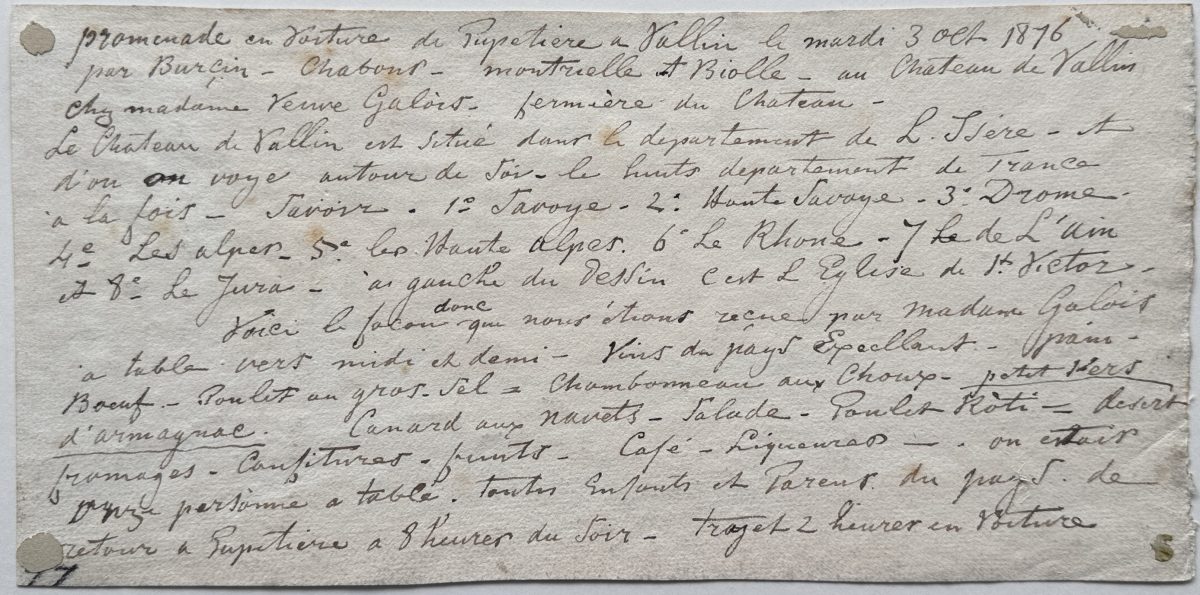 promenade en Voiture de Pupetiere a Vallin le mardi 3 Oct 1876
par Burcin - Chabons - montrevelle et Biolle - au Chateau de Vallin
chez madame Veuve Galois - fermière du Chateau -
Le Chateau de Vallin est situé dans le departement de L. Isére - et
d'ou on voye autour de soi - le huits departement de France
a la fois - Savoir . 1º Savoye - 2º Haute Savoye - 3º Drome -
4e Les alpes - 5e les Haute alpes. 6e Le Rhone - 7 de L'ain
et 8e Le Jura - a gauche du Dessin c est L Eglise de St Victor -
Voici le facon donc que nous étions recue par madame Galois
a table vers midi et demi - Vins du pays Excellant - pain -
Boeuf - Poulet au gros-sel = Chambonneau aux Choux - petit Vers
d'armagnac. Canard aux navets - Salade - Poulet Rôti = desert
fromages - Confitures - fruits - Café - Liqueures - . on etais
personne a table . toutes Enfants et Parens du pays . de
retour a Pupetiere a 8 heures du Soir - trajet 2 heures en Voiture